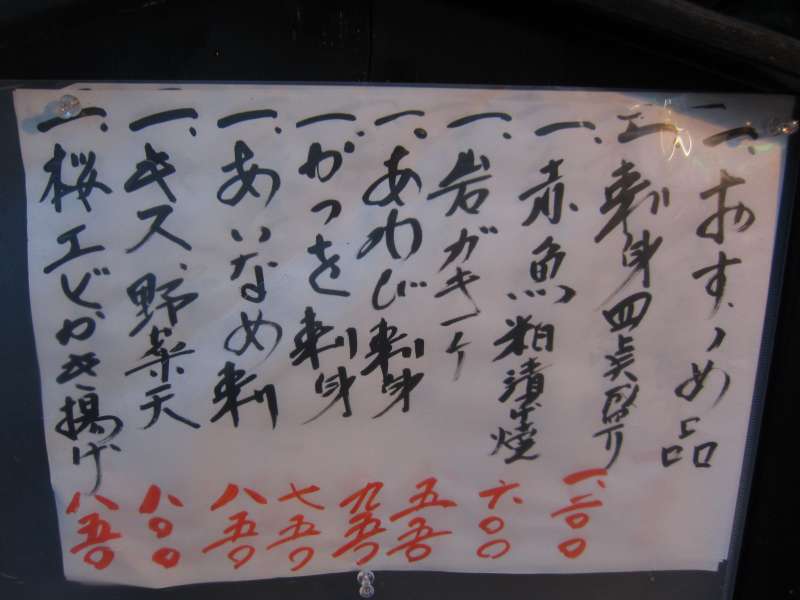 一、おすゝめ品
一、刺身四点盛り 一、二〇〇
一、赤魚粕漬け焼 六〇〇
一、岩ガキ一ケ 五五〇
一、あわび刺身 九五〇
一、がつを刺身 七五〇
一、あいなめ刺 八五〇
一、キス野菜天 八〇〇
一、桜エビかき揚げ 八五〇